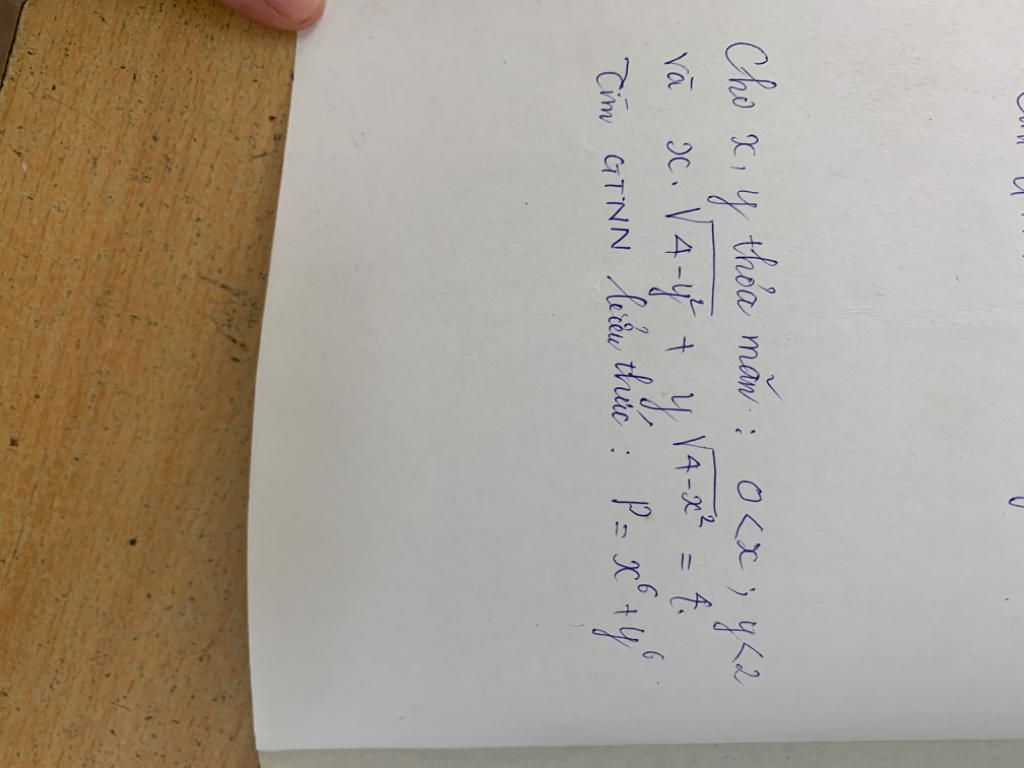 Cho x, y thỏa mãn: 0 < x ; y < 2
và x.√4-y² + y√4-x² = 4.
Tìm GTNN biểu thức: P = x⁶ + y⁶.